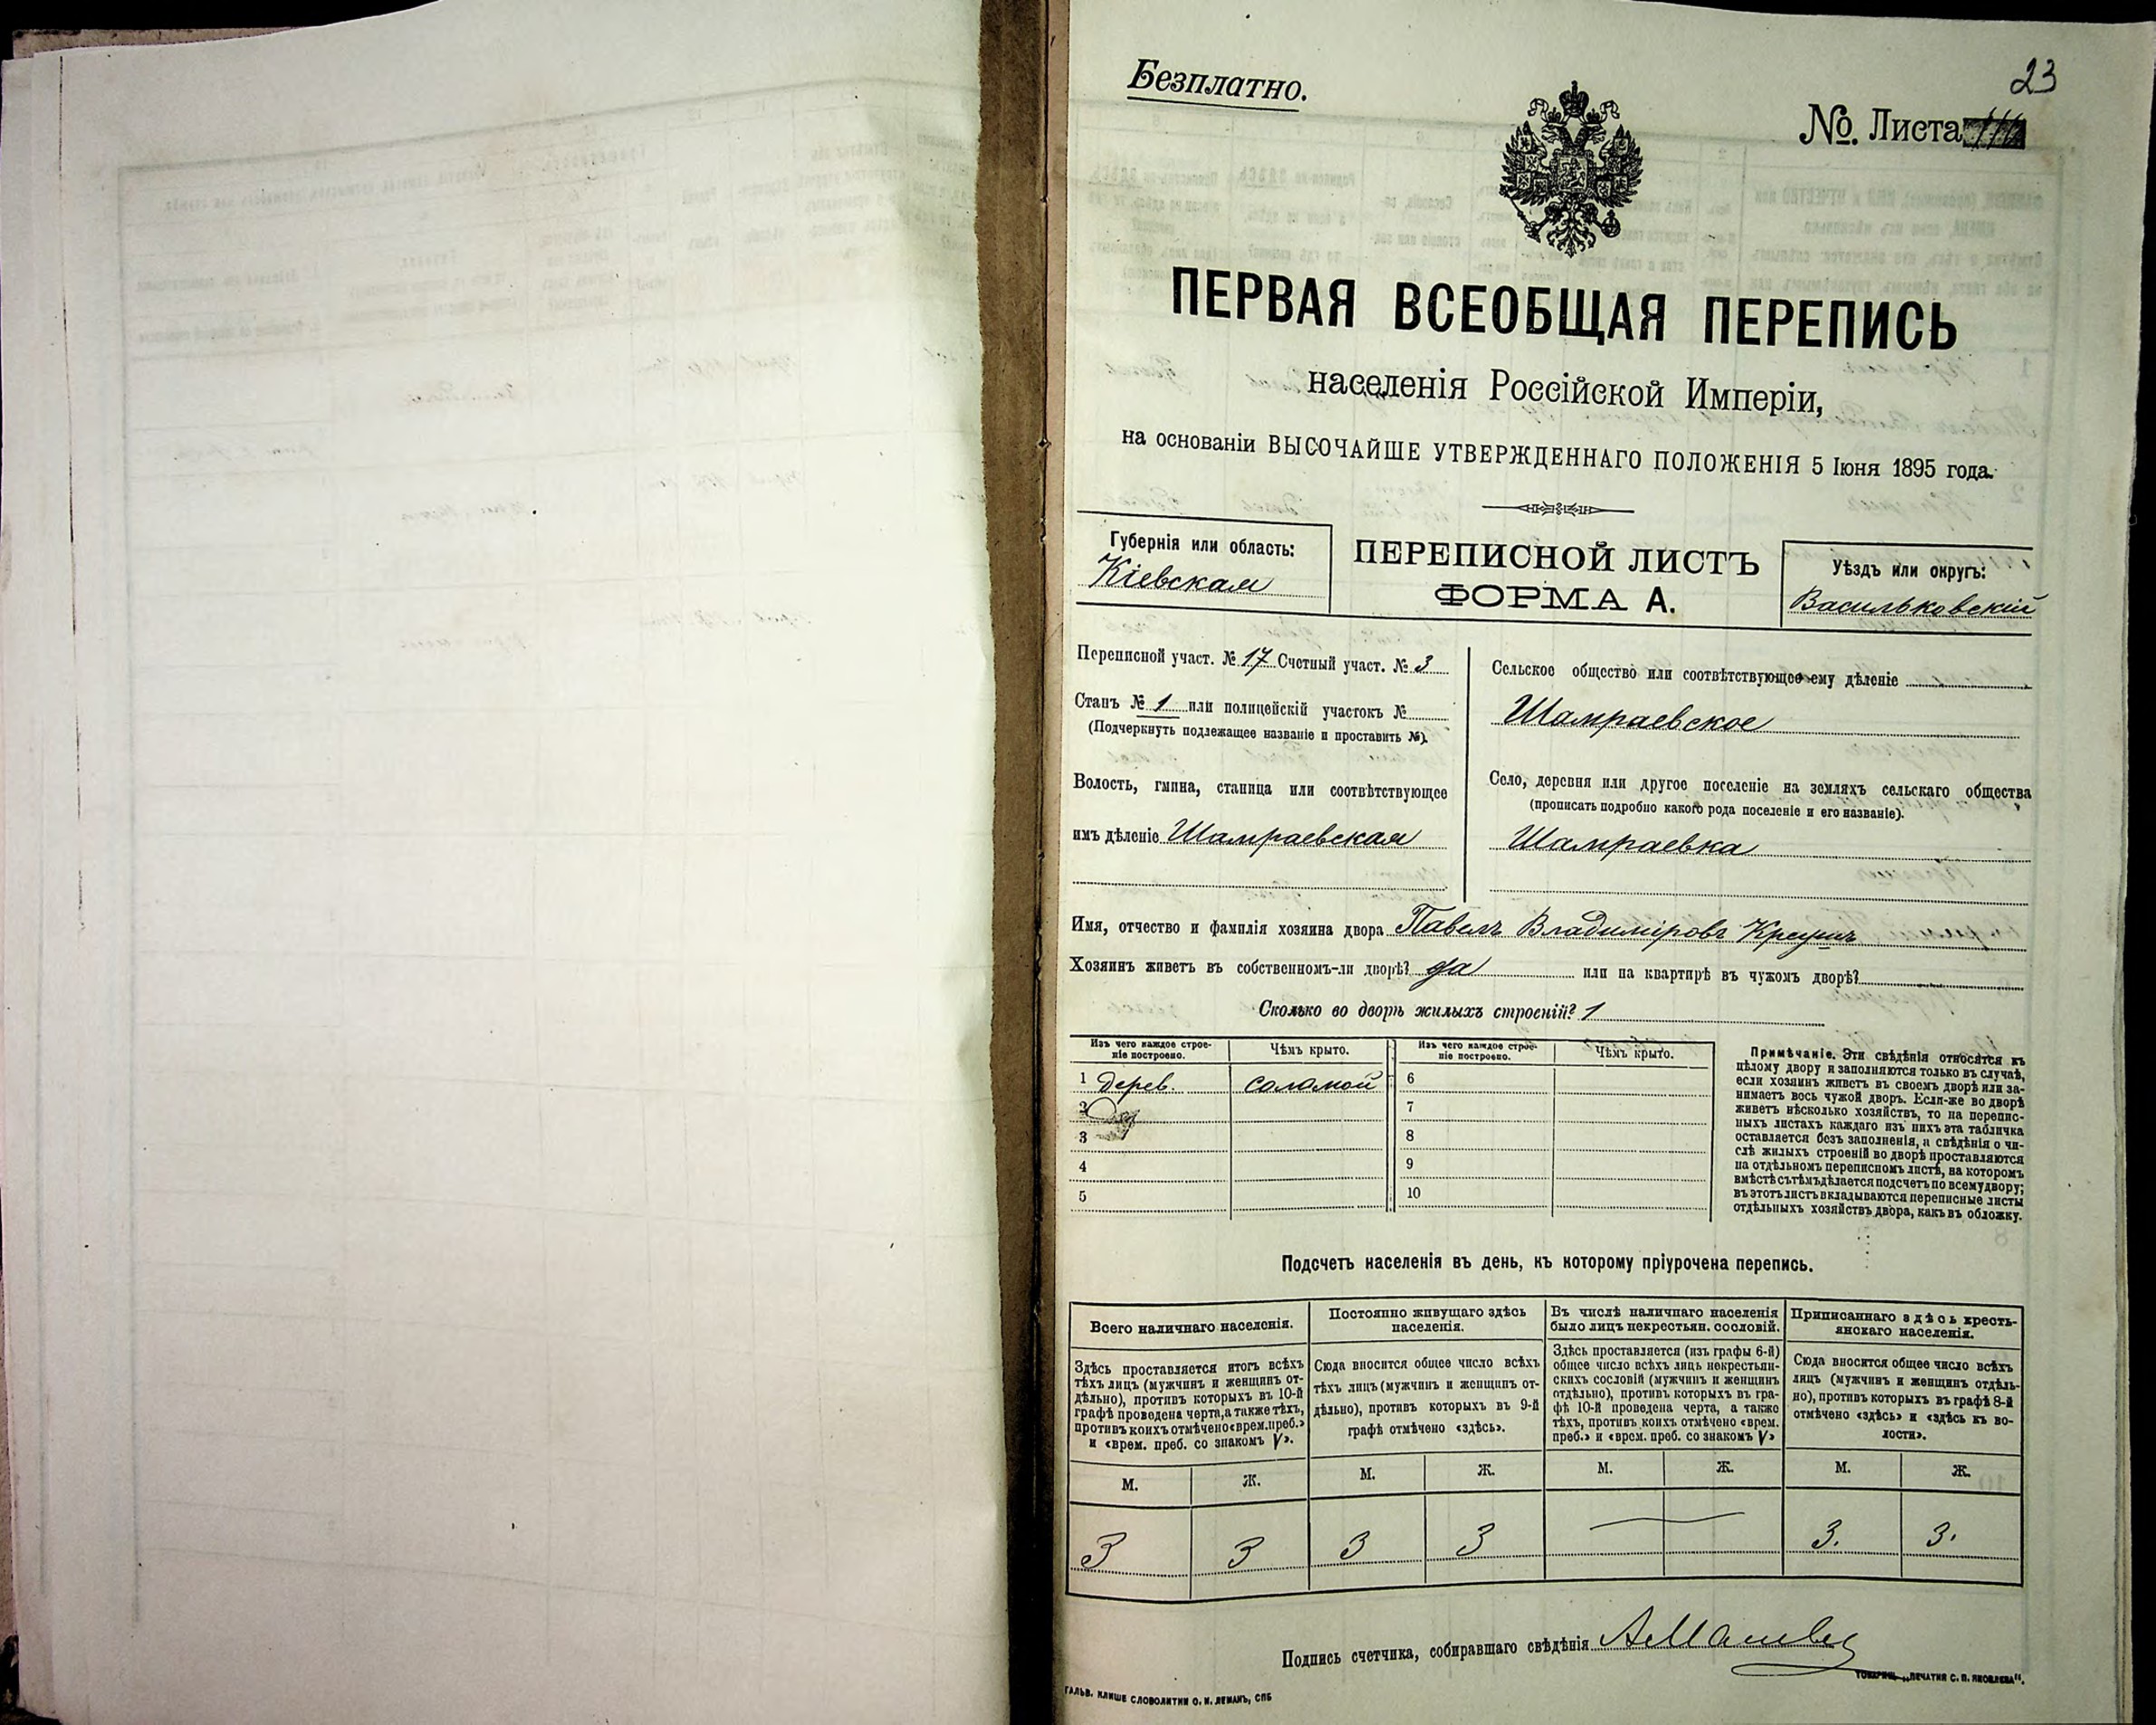 23
Безплатно.
№. Листа
ПЕРВАЯ ВСЕОБЩАЯ ПЕРЕПИСЬ
населенія Россійской Имперіи,
на основаніи ВЫСОЧАЙШЕ УТВЕРЖДЕННАГО ПОЛОЖЕНІЯ 5 Іюня 1895 года.
Губернія или область:
Кіевская
ПЕРЕПИСНОЙ ЛИСТЪ
ФОРМА А.
Уѣздъ или округъ:
Васильковскій
Переписной участ. № 17 Счетный участ. № 3
Станъ № 1 или полицейскій участокъ №
(Подчеркнуть подлежащее названіе и проставить №).
Волость, гмина, станица или соотвѣтствующее
имъ дѣленіе Шамраевская
Сельское общество или соотвѣтствующее ему дѣленіе
Шамраевское
Село, деревня или другое поселеніе на земляхъ сельскаго общества
(прописать подробно какого рода поселеніе и его названіе).
Шамраевка
Имя, отчество и фамилія хозяина двора Павелъ Владиміровъ
Хозяинъ живетъ въ собственномъ-ли дворѣ? да или на квартирѣ въ чужомъ дворѣ?
Сколько во дворѣ жилыхъ строеній? 1
Изъ чего каждое строе-
ніе построено.
Чѣмъ крыто.
Изъ чего каждое строе-
ніе построено.
Чѣмъ крыто.
1 дерев. соломой 6
2 7
3 8
4 9
5 10
Примѣчаніе. Эти свѣдѣнія относятся къ
цѣлому двору и заполняются только въ случаѣ,
если хозяинъ живетъ въ своемъ дворѣ или за-
нимаетъ весь чужой дворъ. Если-же во дворѣ
живетъ нѣсколько хозяйствъ, то на перепис-
ныхъ листахъ каждаго изъ нихъ эта табличка
оставляется безъ заполненія, а свѣдѣнія о чи-
слѣ жилыхъ строеній во дворѣ проставляются
на отдѣльномъ переписномъ листѣ, на которомъ
вмѣстѣ съ тѣмъ дѣлается подсчетъ по всему двору;
въ этотъ листъ вкладываются переписные листы
отдѣльныхъ хозяйствъ двора, какъ въ обложку.
Подсчетъ населенія въ день, къ которому пріурочена перепись.
Всего наличнаго населенія.
Здѣсь проставляется итогъ всѣхъ
тѣхъ лицъ (мужчинъ и женщинъ от-
дѣльно), противъ которыхъ въ 10-й
графѣ проведена черта, а также тѣхъ,
противъ коихъ отмѣчено «врем. преб.»
и «врем. преб. со знакомъ V».
М. Ж.
3 3
Постоянно живущаго здѣсь
населенія.
Сюда вносится общее число всѣхъ
тѣхъ лицъ (мужчинъ и женщинъ от-
дѣльно), противъ которыхъ въ 9-й
графѣ отмѣчено «здѣсь».
М. Ж.
3 3
Въ числѣ наличнаго населенія
было лицъ некрестьян. сословій.
Здѣсь проставляется (изъ графы 6-й)
общее число всѣхъ лицъ некрестьян-
скихъ сословій (мужчинъ и женщинъ
отдѣльно), противъ которыхъ въ гра-
фѣ 10-й проведена черта, а также
тѣхъ, противъ коихъ отмѣчено «врем.
преб.» и «врем. преб. со знакомъ V»
М. Ж.
Приписаннаго здѣсь кресть-
янскаго населенія.
Сюда вносится общее число всѣхъ
лицъ (мужчинъ и женщинъ отдѣль-
но), противъ которыхъ въ графѣ 8-й
отмѣчено «здѣсь» и «здѣсь въ во-
лости».
М. Ж.
3. 3.
Подпись счетчика, собиравшаго свѣдѣнія
ТОВАРИЩ. „ПЕЧАТНЯ С. П. ЯКОВЛЕВА".
ГАЛЬВ. КЛИШЕ СЛОВОЛИТНИ О. И. ЛЕМАНЪ, СПБ